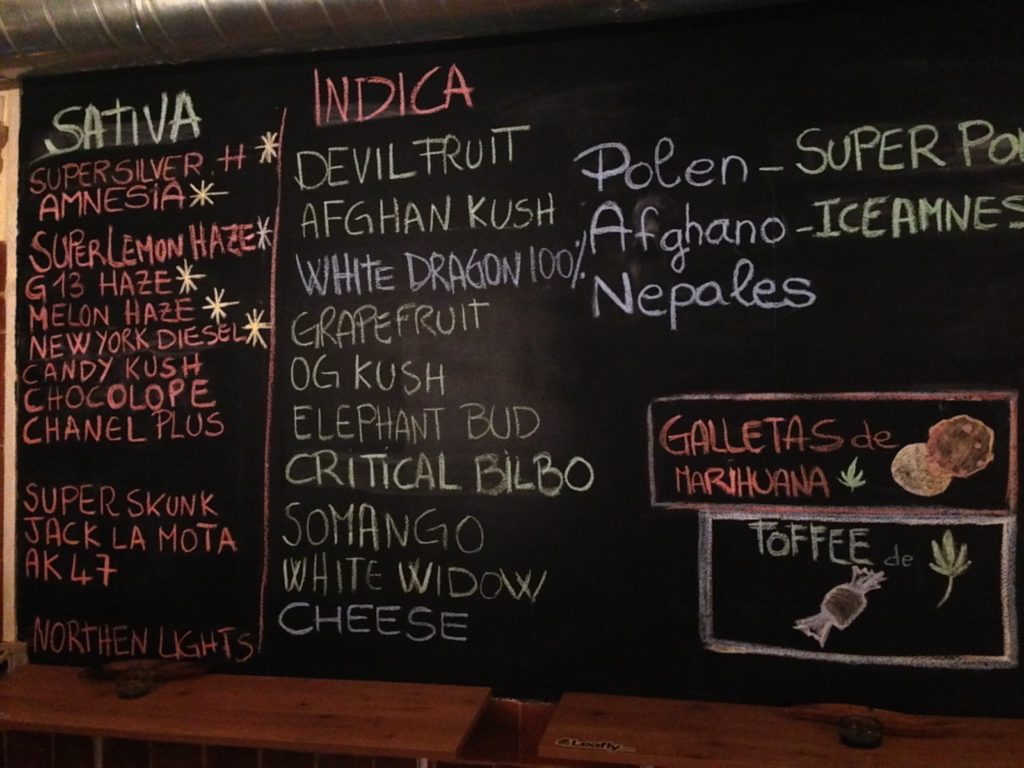 SATIVA
SUPERSILVER.H
AMNESIA
SUPERLEMON HAZE
G13 HAZE
MELON HAZE
NEW YORK DIESEL
CANDY KUSH
CHOCOLOPE
CHANEL PLUS
SUPER SKUNK
JACK LA MOTA
AK47
NORTHEN LIGHTS
INDICA
DEVIL FRUIT
AFGHAN KUSH
WHITE DRAGON 100%
GRAPEFRUIT
OG KUSH
ELEPHANT BUD
CRITICAL BILBO
SOMANGO
WHITE WIDOW
CHEESE
Polen - SUPER POL
Afghano - ICEAMNES
Nepales
GALLETAS de
MARIHUANA
TOFFEE de
Leafly